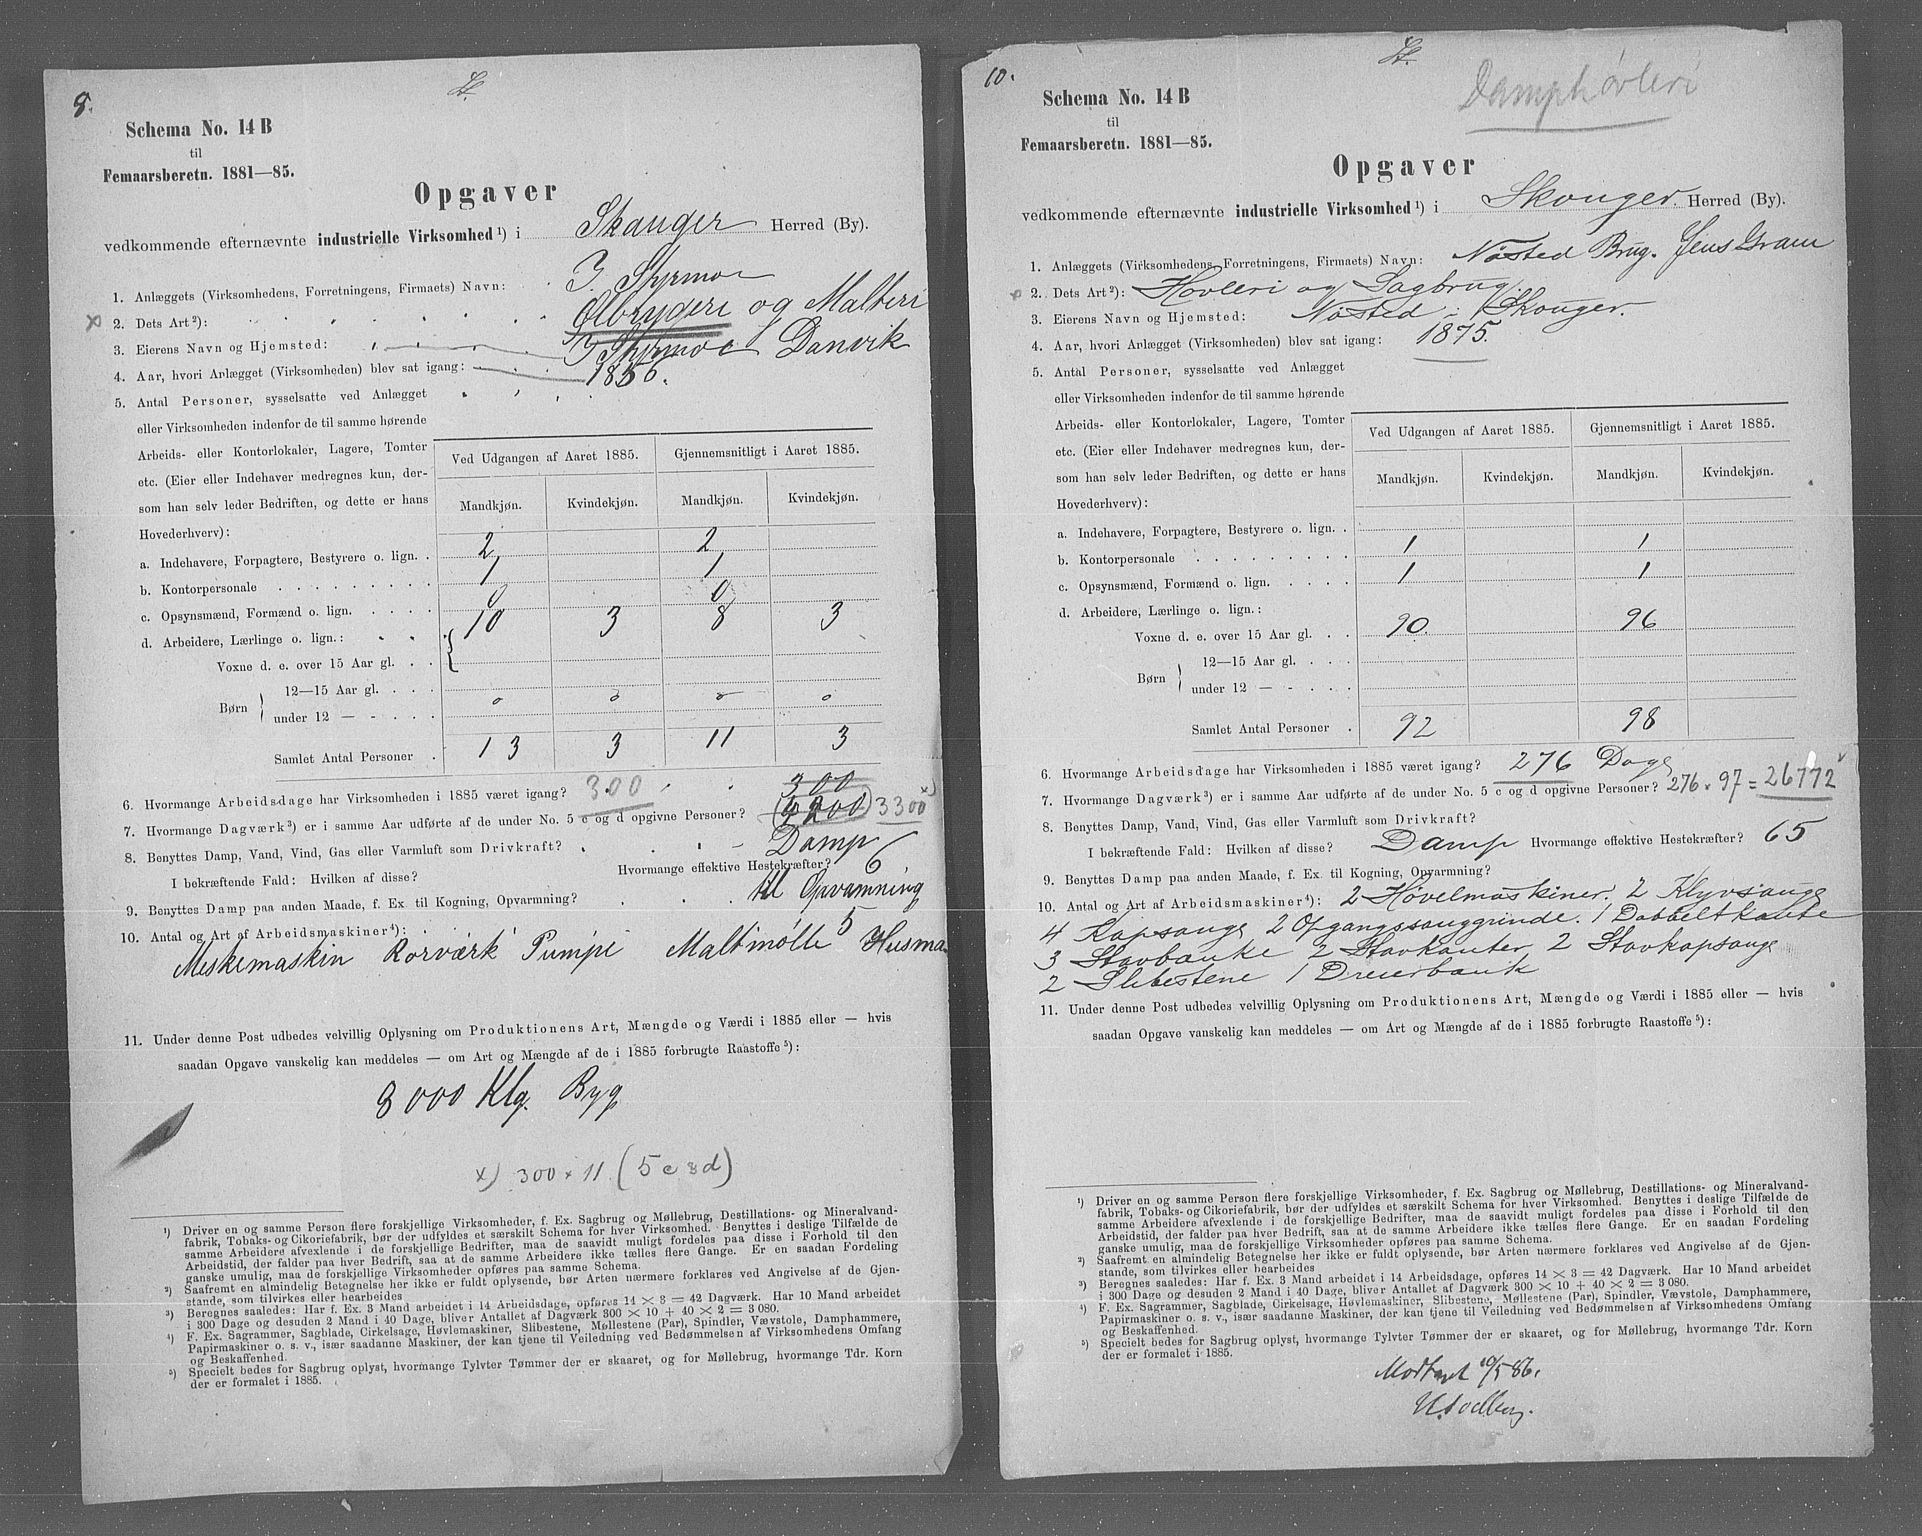 8.
St.
Schema No. 14 B
til
Femaarsberetn. 1881—85.
Opgaver
vedkommende efternævnte industrielle Virksomhed ¹) i Skauger Herred (By).
1. Anlæggets (Virksomhedens, Forretningens, Firmaets) Navn: J. Styrmoe
x 2. Dets Art ²): Ølbryggeri og Malteri
3. Eierens Navn og Hjemsted: J Styrmoe Danvik
4. Aar, hvori Anlægget (Virksomheden) blev sat igang: 1856.
5. Antal Personer, sysselsatte ved Anlægget
eller Virksomheden indenfor de til samme hørende
Arbeids- eller Kontorlokaler, Lagere, Tomter
etc. (Eier eller Indehaver medregnes kun, der-
som han selv leder Bedriften, og dette er hans
Hovederhverv):
Ved Udgangen af Aaret 1885. Gjennemsnitligt i Aaret 1885.
Mandkjøn. Kvindekjøn. Mandkjøn. Kvindekjøn.
a. Indehavere, Forpagtere, Bestyrere o. lign. . 2 2
b. Kontorpersonale . . . . . . . 1 1
c. Opsynsmænd, Formænd o. lign. . . . . 0 0
d. Arbeidere, Lærlinge o. lign.: 10 3 8 3
Voxne d. e. over 15 Aar gl. . .
Børn 12—15 Aar gl. . . .
under 12 — - . . . 0 0 0 0
Samlet Antal Personer . 13 3 11 3
6. Hvormange Arbeidsdage har Virksomheden i 1885 været igang? 300 300
7. Hvormange Dagværk ³) er i samme Aar udførte af de under No. 5 c og d opgivne Personer? 3300 x)
8. Benyttes Damp, Vand, Vind, Gas eller Varmluft som Drivkraft? Damp
I bekræftende Fald: Hvilken af disse? Hvormange effektive Hestekræfter? 6
9. Benyttes Damp paa anden Maade, f. Ex til Kogning, Opvarmning? til Opvarmning
10. Antal og Art af Arbeidsmaskiner ⁴):
Meskemaskin Rorværk Pumpe Maltmølle 5
11. Under denne Post udbedes velvillig Oplysning om Produktionens Art, Mængde og Værdi i 1885 eller — hvis
saadan Opgave vanskelig kan meddeles — om Art og Mængde af de i 1885 forbrugte Raastoffe ⁵):
8000 Klg. Byg
x) 300 × 11 (5 c & d)
¹) Driver en og samme Person flere forskjellige Virksomheder, f. Ex. Sagbrug og Møllebrug, Destillations- og Mineralvand-
fabrik, Tobaks- og Cikoriefabrik, bør der udfyldes et særskilt Schema for hver Virksomhed. Benyttes i deslige Tilfælde de
samme Arbeidere afvexlende i de forskjellige Bedrifter, maa de saavidt muligt fordeles paa disse i Forhold til den
Arbeidstid, der falder paa hver Bedrift, saa at de samme Arbeidere ikke tælles flere Gange. Er en saadan Fordeling
ganske umulig, maa de forskjellige Virksomheder opføres paa samme Schema.
²) Saafremt en almindelig Betegnelse her ikke er fuldt oplysende, bør Arten nærmere forklares ved Angivelse af de Gjen-
stande, som tilvirkes eller bearbeides
³) Beregnes saaledes: Har f. Ex. 3 Mand arbeidet i 14 Arbeidsdage, opføres 14 × 3 = 42 Dagværk. Har 10 Mand arbeidet
i 300 Dage og desuden 2 Mand i 40 Dage, bliver Antallet af Dagværk 300 × 10 + 40 × 2 = 3 080.
⁴) F. Ex. Sagrammer, Sagblade, Cirkelsage, Høvlemaskiner, Slibestene, Møllestene (Par), Spindler, Vævstole, Damphammere,
Papirmaskiner o. s. v., især saadanne Maskiner, der kan tjene til Veiledning ved Bedømmelsen af Virksomhedens Omfang
og Beskaffenhed.
⁵) Specielt bedes for Sagbrug oplyst, hvormange Tylvter Tømmer der er skaaret, og for Møllebrug, hvormange Tdr. Korn
der er formalet i 1885.
10.
St.
Damphøvleri
Schema No. 14 B
til
Femaarsberetn. 1881—85.
Opgaver
vedkommende efternævnte industrielle Virksomhed ¹) i Skouger. Herred (By).
1. Anlæggets (Virksomhedens, Forretningens, Firmaets) Navn: Nøsted Brug. Jens Gram
2. Dets Art ²): Høvleri og Sagbrug.
3. Eierens Navn og Hjemsted: Nøsted i Skouger.
4. Aar, hvori Anlægget (Virksomheden) blev sat igang: 1875.
5. Antal Personer, sysselsatte ved Anlægget
eller Virksomheden indenfor de til samme hørende
Arbeids- eller Kontorlokaler, Lagere, Tomter
etc. (Eier eller Indehaver medregnes kun, der-
som han selv leder Bedriften, og dette er hans
Hovederhverv):
Ved Udgangen af Aaret 1885. Gjennemsnitligt i Aaret 1885.
Mandkjøn. Kvindekjøn. Mandkjøn. Kvindekjøn.
a. Indehavere, Forpagtere, Bestyrere o. lign. .
b. Kontorpersonale . . . . . . . . 1 1
c. Opsynsmænd, Formænd o. lign. . . . . 1 1
d. Arbeidere, Lærlinge o. lign.:
Voxne d. e. over 15 Aar gl. . . 90. 96
Børn 12—15 Aar gl. . . .
under 12 — - . . .
Samlet Antal Personer . 92 98
6. Hvormange Arbeidsdage har Virksomheden i 1885 været igang? 276 Dage
7. Hvormange Dagværk ³) er i samme Aar udførte af de under No. 5 c og d opgivne Personer? 276 × 97 = 26772
8. Benyttes Damp, Vand, Vind, Gas eller Varmluft som Drivkraft?
I bekræftende Fald: Hvilken af disse? Damp Hvormange effektive Hestekræfter? 65
9. Benyttes Damp paa anden Maade, f. Ex. til Kogning, Opvarmning?
10. Antal og Art af Arbeidsmaskiner ⁴): 2 Høvelmaskiner. 2 Klyvsauge
4 Kapsauge 2 Opgangssauggrinde. 1 Dobbeltkante
3 Stavbanke 2 Stavkanter 2 Stavkapsauge
2 Slibestene 1 Dreierbank
11. Under denne Post udbedes velvillig Oplysning om Produktionens Art, Mængde og Værdi i 1885 eller — hvis
saadan Opgave vanskelig kan meddeles — om Art og Mængde af de i 1885 forbrugte Raastoffe ⁵):
¹) Driver en og samme Person flere forskjellige Virksomheder, f. Ex. Sagbrug og Møllebrug, Destillations- og Mineralvand-
fabrik, Tobaks- og Cikoriefabrik, bør der udfyldes et særskilt Schema for hver Virksomhed. Benyttes i deslige Tilfælde de
samme Arbeidere afvexlende i de forskjellige Bedrifter, maa de saavidt muligt fordeles paa disse i Forhold til den
Arbeidstid, der falder paa hver Bedrift, saa at de samme Arbeidere ikke tælles flere Gange. Er en saadan Fordeling
ganske umulig, maa de forskjellige Virksomheder opføres paa samme Schema.
²) Saafremt en almindelig Betegnelse her ikke er fuldt oplysende, bør Arten nærmere forklares ved Angivelse af de Gjen-
stande, som tilvirkes eller bearbeides
³) Beregnes saaledes: Har f. Ex. 3 Mand arbeidet i 14 Arbeidsdage, opføres 14 × 3 = 42 Dagværk. Har 10 Mand arbeidet
i 300 Dage og desuden 2 Mand i 40 Dage, bliver Antallet af Dagværk 300 × 10 + 40 × 2 = 3 080.
⁴) F. Ex. Sagrammer, Sagblade, Cirkelsage, Høvlemaskiner, Slibestene, Møllestene (Par), Spindler, Vævstole, Damphammere,
Papirmaskiner o. s. v., især saadanne Maskiner, der kan tjene til Veiledning ved Bedømmelsen af Virksomhedens Omfang
og Beskaffenhed.
⁵) Specielt bedes for Sagbrug oplyst, hvormange Tylvter Tømmer der er skaaret, og for Møllebrug, hvormange Tdr. Korn
der er formalet i 1885.
Modtaget 10/5 86.